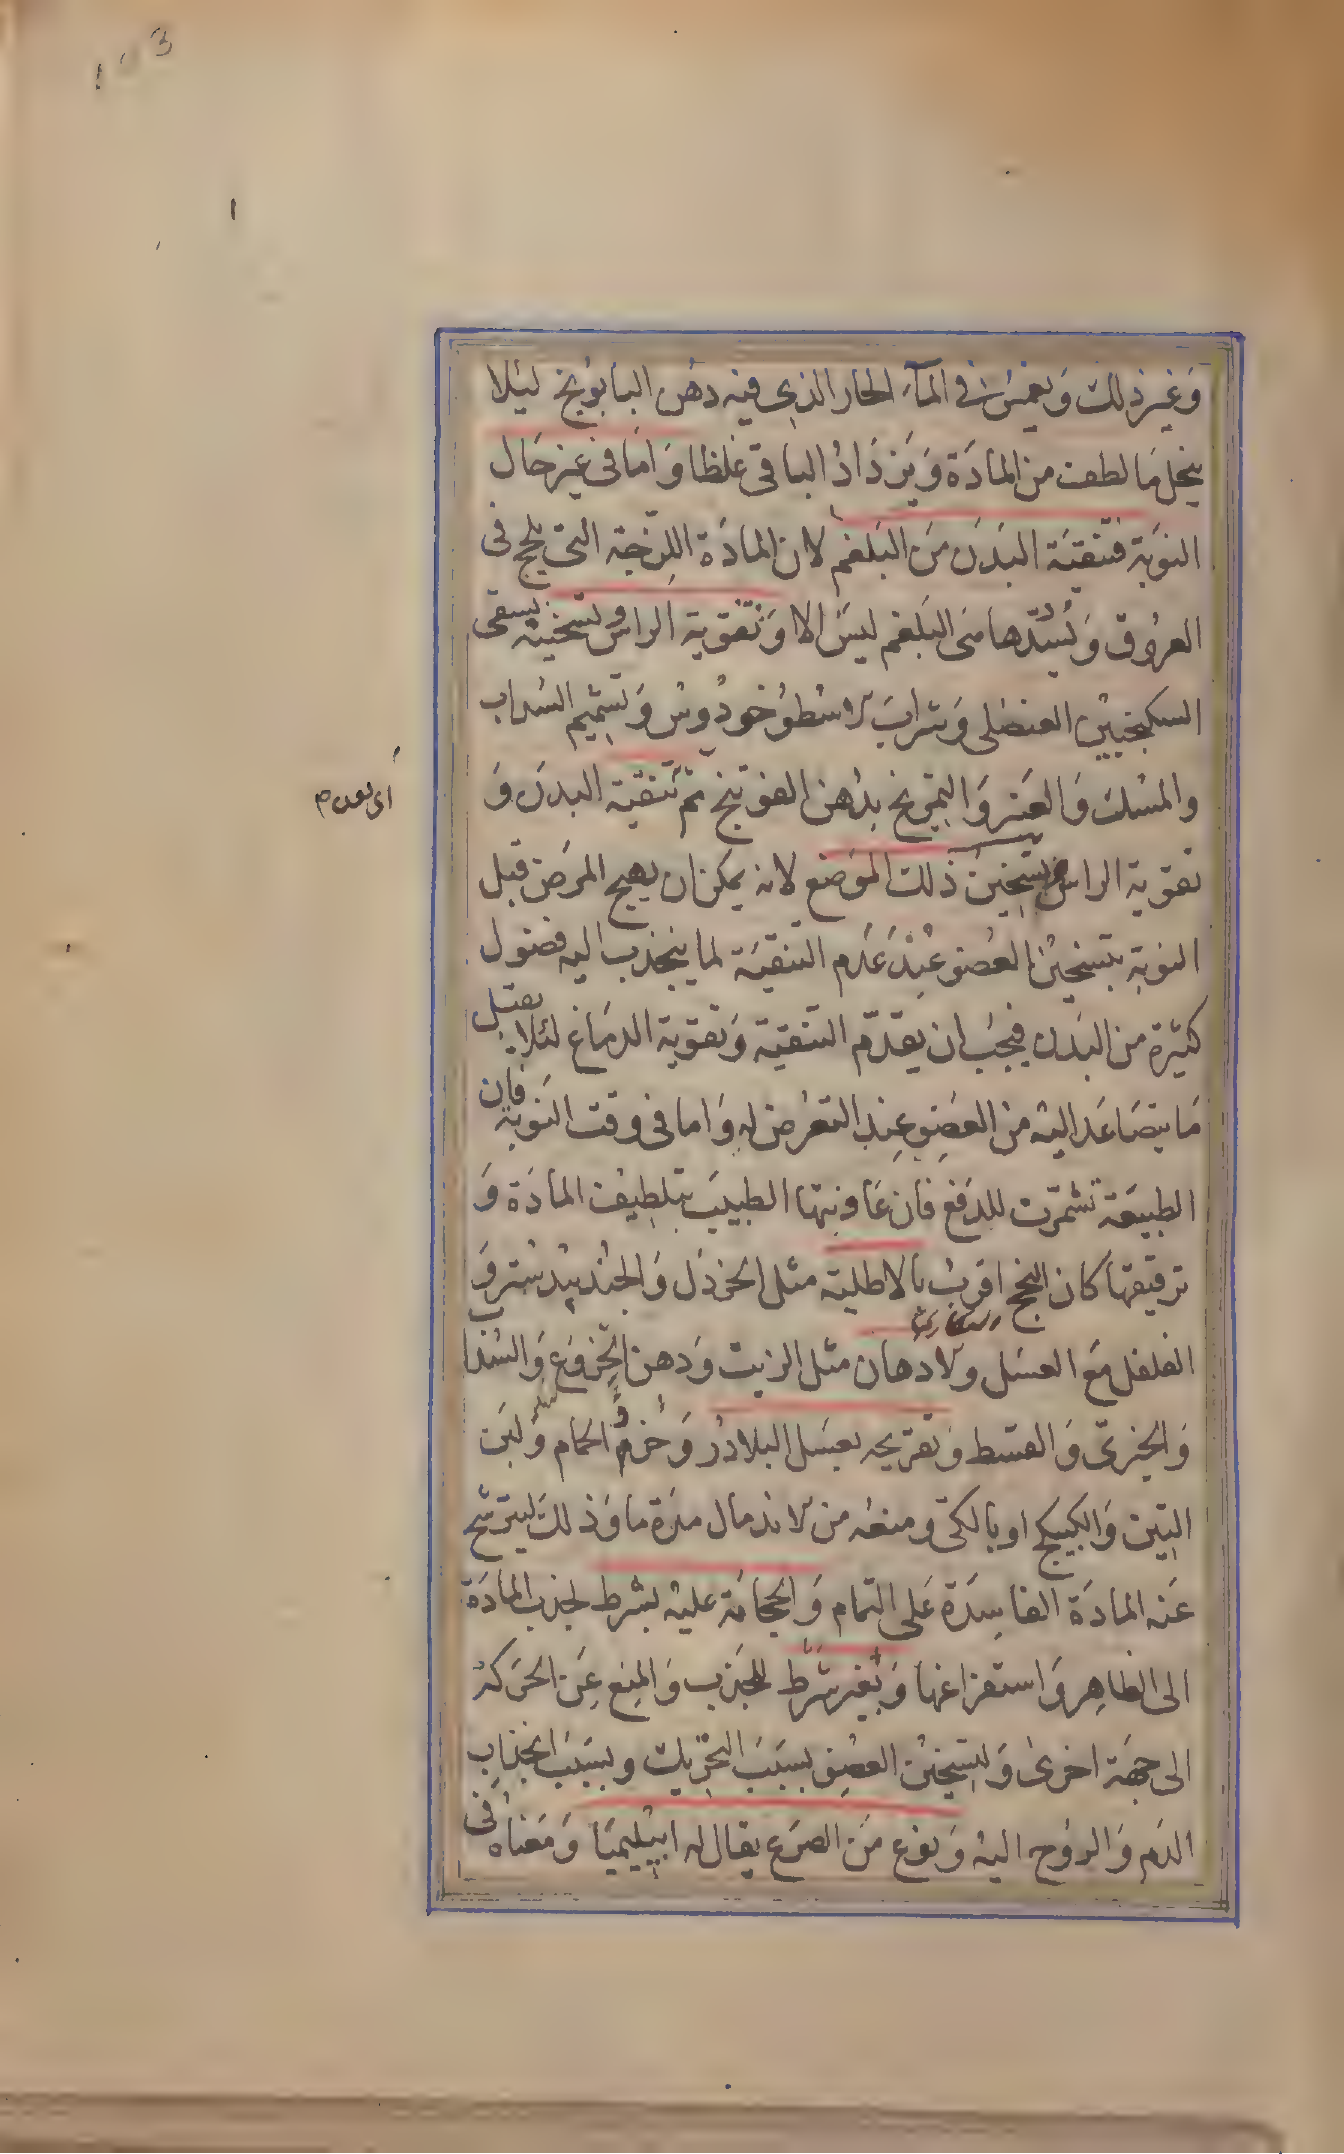 وَغير ذلك وَيغمس في المآء الحار الذي فيه دهن البابونج ليئلا
ينحل مَا لطف من المادَة وَيزدَادُ الباقي غلظا وَاما في غير حَال
النوبَة فتنقيَة البَدَن مَن البَلغم لان المادَة اللزجَة التي تلج في
العرُوق وَتسُدّها مَن البَلغم ليسَ الا وَتقويَة الراس وتسخينه يسقى
السكنجبين العنصلى وَشرابَ الاسطوُخودُوس وَتشميم السُداب
والمسْك وَالعَنبر وَالتمريخ بدُهن الفوتنج ثم تنقية البدَن وَ
تقوية الراس وتسخين ذلك الموَضع لانه يمكن ان يهيج المرَض قبل
النوبَة بتسخين العضو عِندَ عَدَم التنقيَة لما ينجذب اليه فضول
كثيرة من البَدن فيجبَ ان يقدّم التنقية وَتقوية الدمَاغ لئلا يقبل
مَا يتصَاعَد اليه من العضو عِند التعرض له وَاما في وقت النوبَة فان
الطبيعَة تشمّرت للدفع فان عَاونها الطبيبَ بتلطيف المادَة وَ
ترقيقها كان النجح اقرب بالاطلية مثل الخردَل وَالجُندبيدستر وَ
الفلفل مَع العسَل والادهان مثل الزيت وَدهن الخِروَع وَالسُذاب
وَالخيرىّ وَالقسط وَتقريحه بعسَل البلادُر وَخرءُ الحمام وَلبَن
التين وَالكبيكج او بالكىّ ومنعُه من الاندمال مدَة ما وَذلك ليترشح
عَنه المادَة الفاسِدَة عَلى التمام وَالحجامَة عليه بشرط لجذب المادَة
الى الظاهِر وَاستفراغها وَبغير شَرط للجذب وَالمنع عَن الحرَكة
الى جهَة اخرىٰ وَلتسخين العضو بسَبَب التحريك وبسَبَب انجذاب
الدَم وَالروُح اليه وَنوع مَن الصرَع يقال له ابيليميَا وَمَعناه في